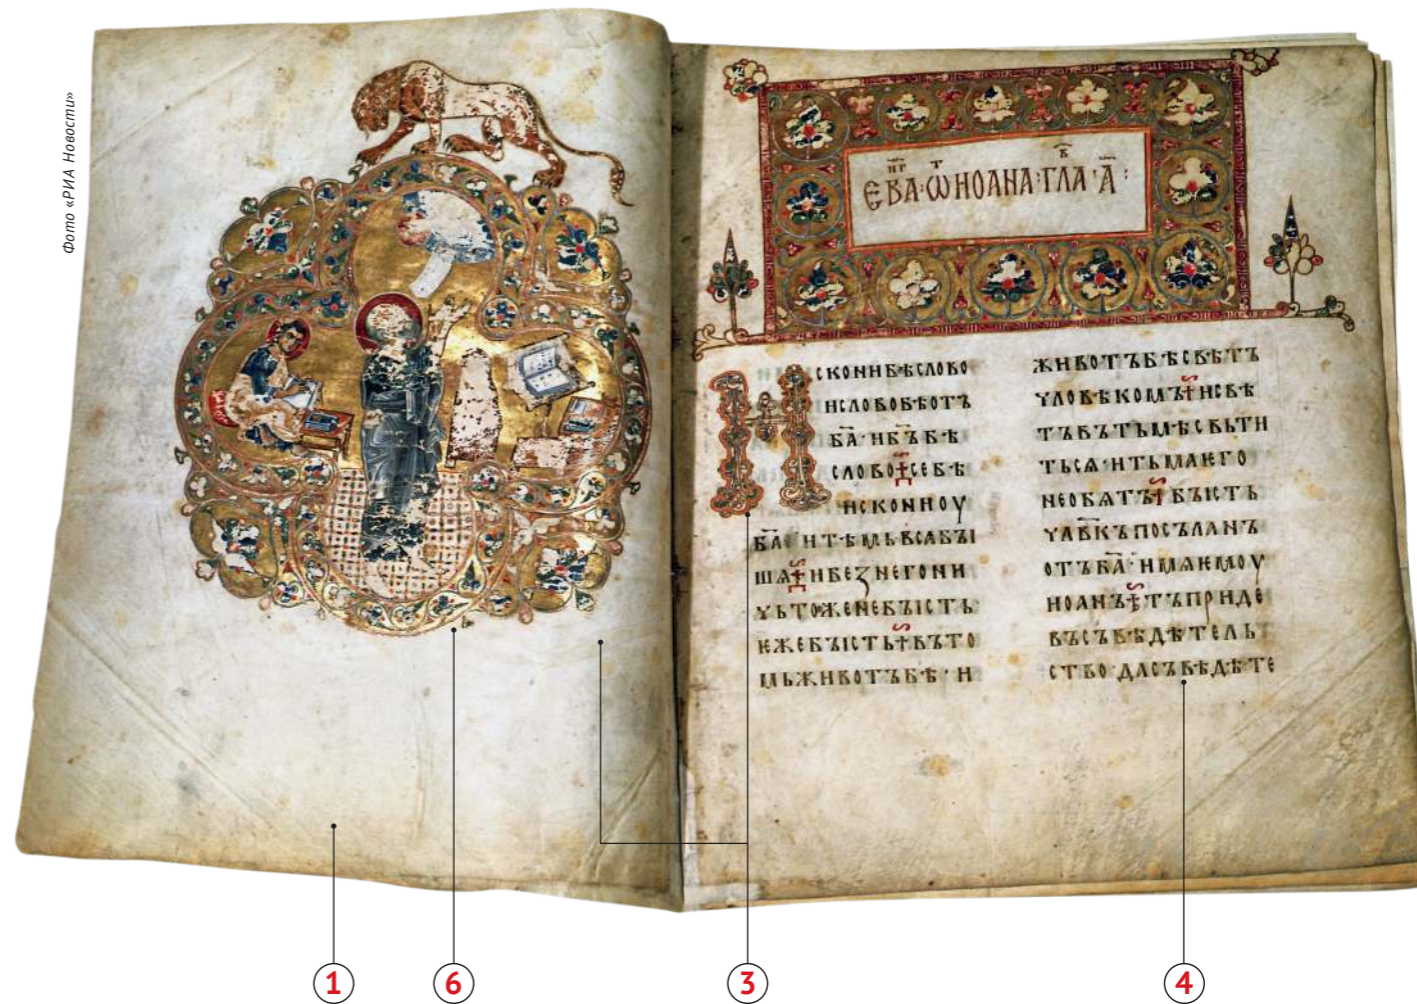 Фото «РИА Новости»
ЄВАнг҃ · Ѡт · ИОАНА · ГЛАв · А҃ :
ИСКОНИБѢСЛОВО
ИСЛОВОБѢОТЪ
БА҃ · ИБЪ҃БѢ
СЛОВО ⁜ СЕБѢ
ИСКОНИОУ
БА҃ · ИТѢМЬВСꙖБЪІ
ШѦ ⁜ ИБЕЗНЕГОНИ
ЧЬТОЖЕНЕБЪІСТЬ
ѤЖЕБЪІСТЬ ⁜ ВЪТО
МЬЖИВОТЪБѢ · И
ЖИВОТЪБѢСВѢТЪ
ЧЛОВѢКОМЪ ⁜ ИСВѢ
ТЪВЪТЬМѢСВЬТИ
ТЬСѦ · ИТЬМАѤГО
НЕОБѦТЪ ⁜ БЪІСТЬ
ЧЛВ҃КЪПОСЪЛАНЪ
ОТЪБА҃ · ИМѦѤМОУ
ИОАНЪ ⁜ ТЪПРИДЕ
ВЪСЪВѢДѢТЕЛЬ
СТВО · ДАСЪВѢДѢТЕ
1 6 3 4